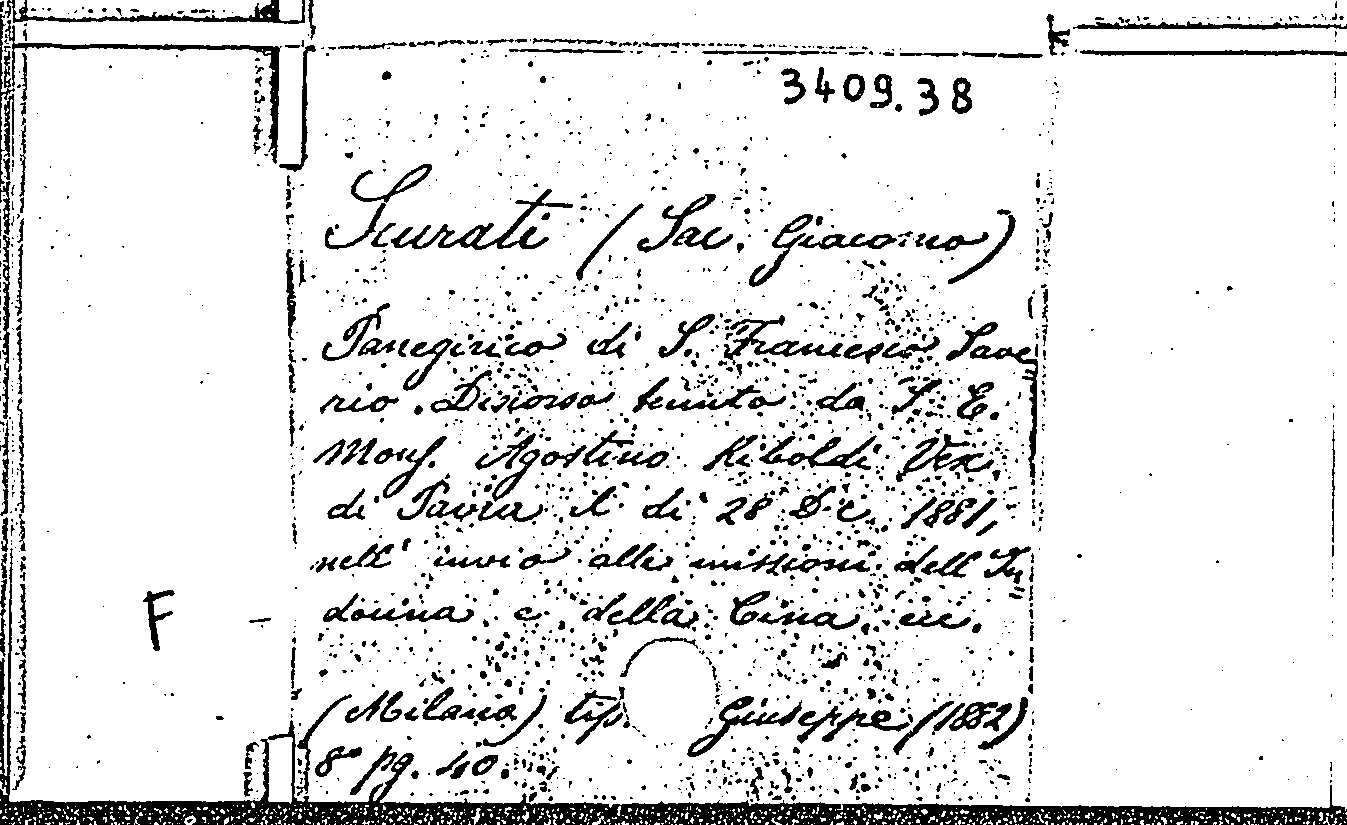 3409.38
Scurati (Sac. Giacomo)
Panegirico di S. Francesco Save=
rio. Discorso tenuto da S. E.
Mons. Agostino Riboldi Vesc.
di Pavia il dì 28 Dic. 1881,
nell' invio alle missioni dell' In=
docina e della Cina, ecc.
F
(Milano) tip. Giuseppe (1882)
8° pg. 40.